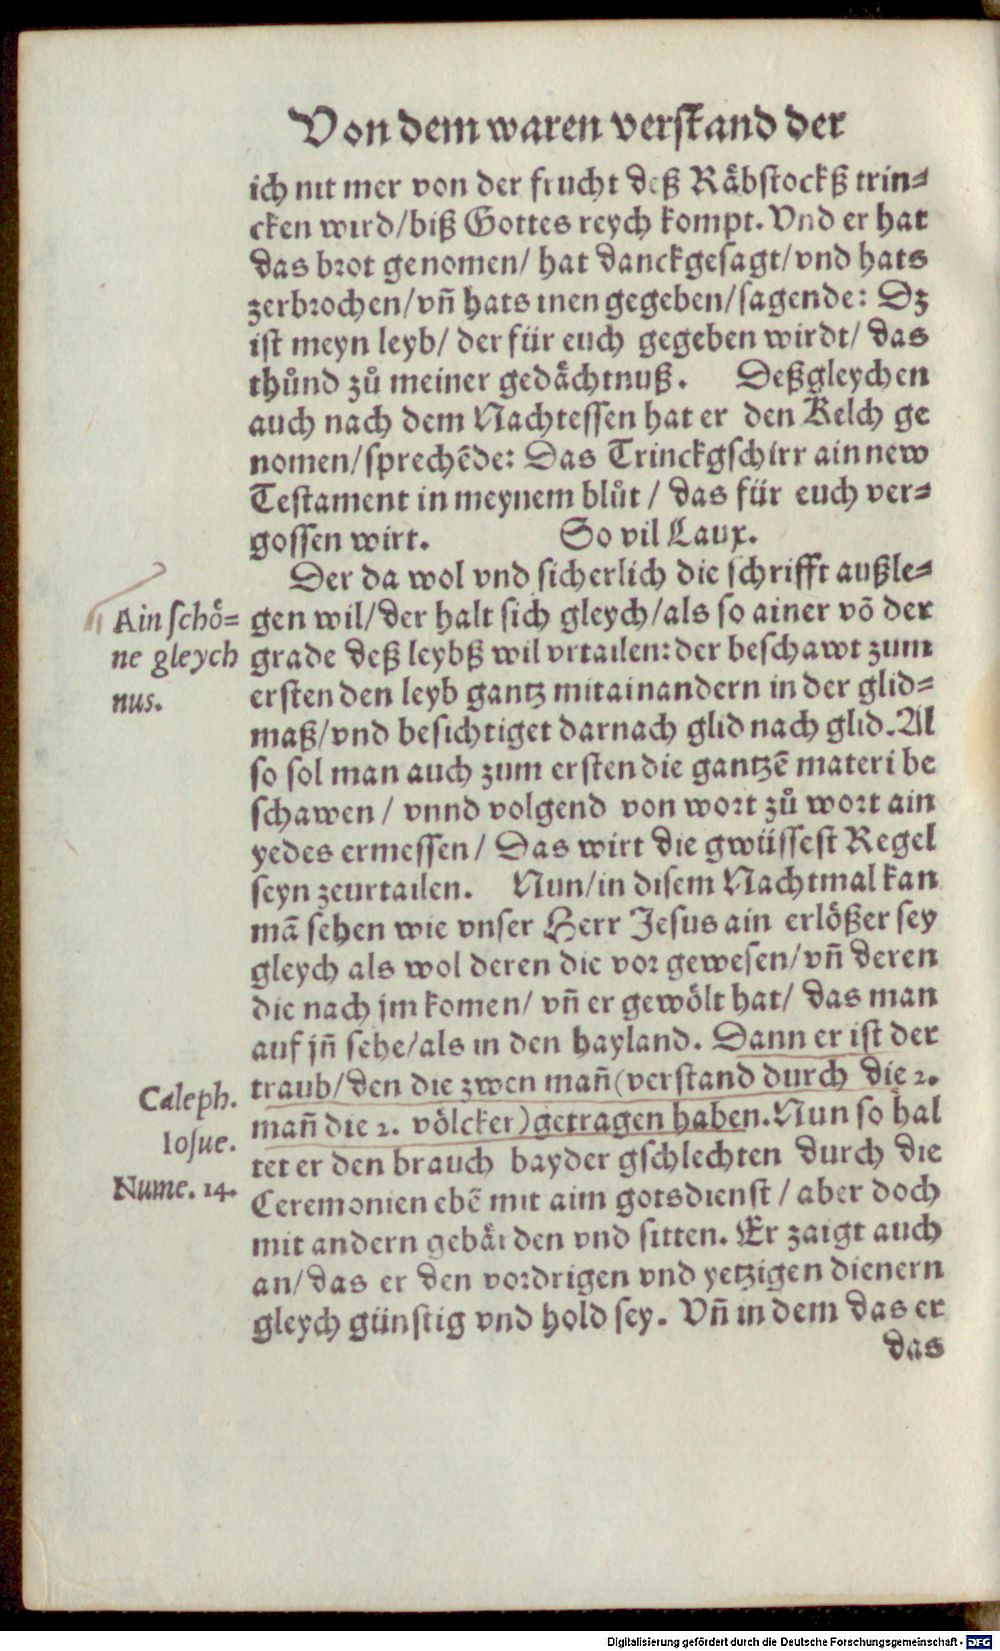 Von dem waren verstand der
ich nit mer von der frucht deß Råbstockß trin⸗
cken wird/biß Gottes reych kompt. Vnd er hat
das brot genomen/ hat danckgesagt/vnd hats
zerbrochen/vñ hats inen gegeben/sagende: Dz
ist meyn leyb/ der für euch gegeben wirdt/ das
thůnd zů meiner gedächtnuß. Deßgleychen
auch nach dem Nachtessen hat er den Kelch ge
nomen/sprechēde: Das Trinckgschirr ain new
Testament in meynem blůt / das für euch ver⸗
gossen wirt. So vil Laux.
Der da wol vnd sicherlich die schrifft außle⸗
Ain schö=
ne gleych
nus.
gen wil/der halt sich gleych/als so ainer vō der
grade deß leybß wil vrtailen: der beschawt zum
ersten den leyb gantz mitainandern in der glid⸗
maß/vnd besichtiget darnach glid nach glid. Al
so sol man auch zum ersten die gantzē materi be
schawen / vnnd volgend von wort zů wort ain
yedes ermessen/ Das wirt die gwüssest Regel
seyn zeurtailen. Nun/in disem Nachtmal kan
mā sehen wie vnser Herr Jesus ain erlößer sey
gleych als wol deren die vor gewesen/vñ deren
die nach jm komen/ vñ er gewölt hat/ das man
auf jñ sehe/als in den hayland. Dann er ist der
Caleph.
Iosue.
Nume. 14.
traub/den die zwen mañ(verstand durch die 2.
mañ die 2. völcker)getragen haben. Nun so hal
tet er den brauch bayder gschlechten durch die
Ceremonien ebē mit aim gotsdienst / aber doch
mit andern gebärden vnd sitten. Er zaigt auch
an/das er den vordrigen vnd yetzigen dienern
gleych günstig vnd hold sey. Vñ in dem das er
das
Digitalisierung gefördert durch die Deutsche Forschungsgemeinschaft - DFG